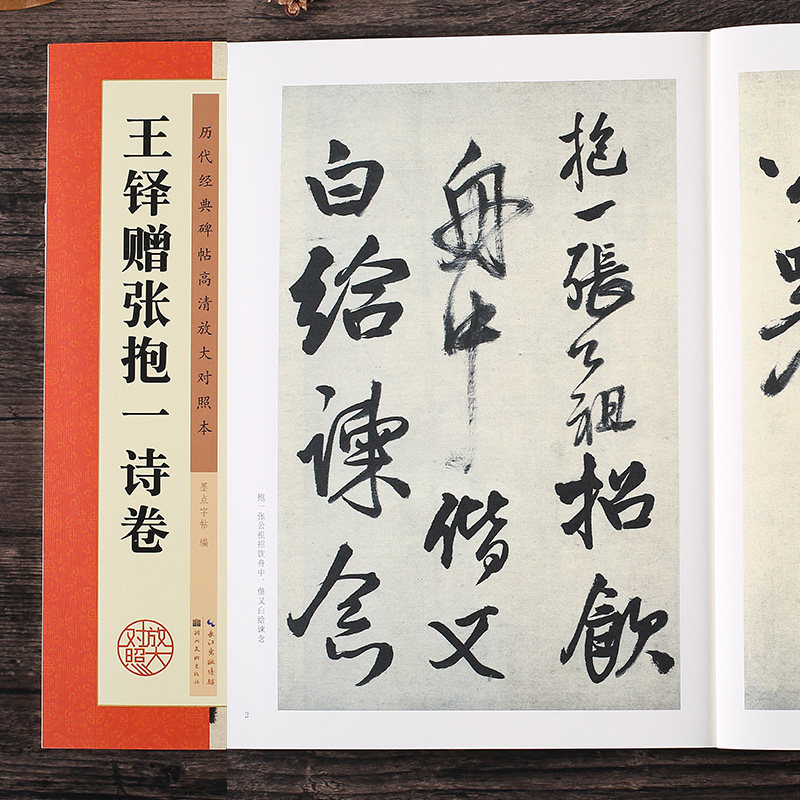 历代经典碑帖高清放大对照本
王铎赠张抱一诗卷
墨点字帖 编
放大
对照
长江出版传媒
湖北美术出版社
抱一張公祖招飲
舟中偕又
白给諫念
抱一张公祖招饮舟中、偕又白给谏念
2